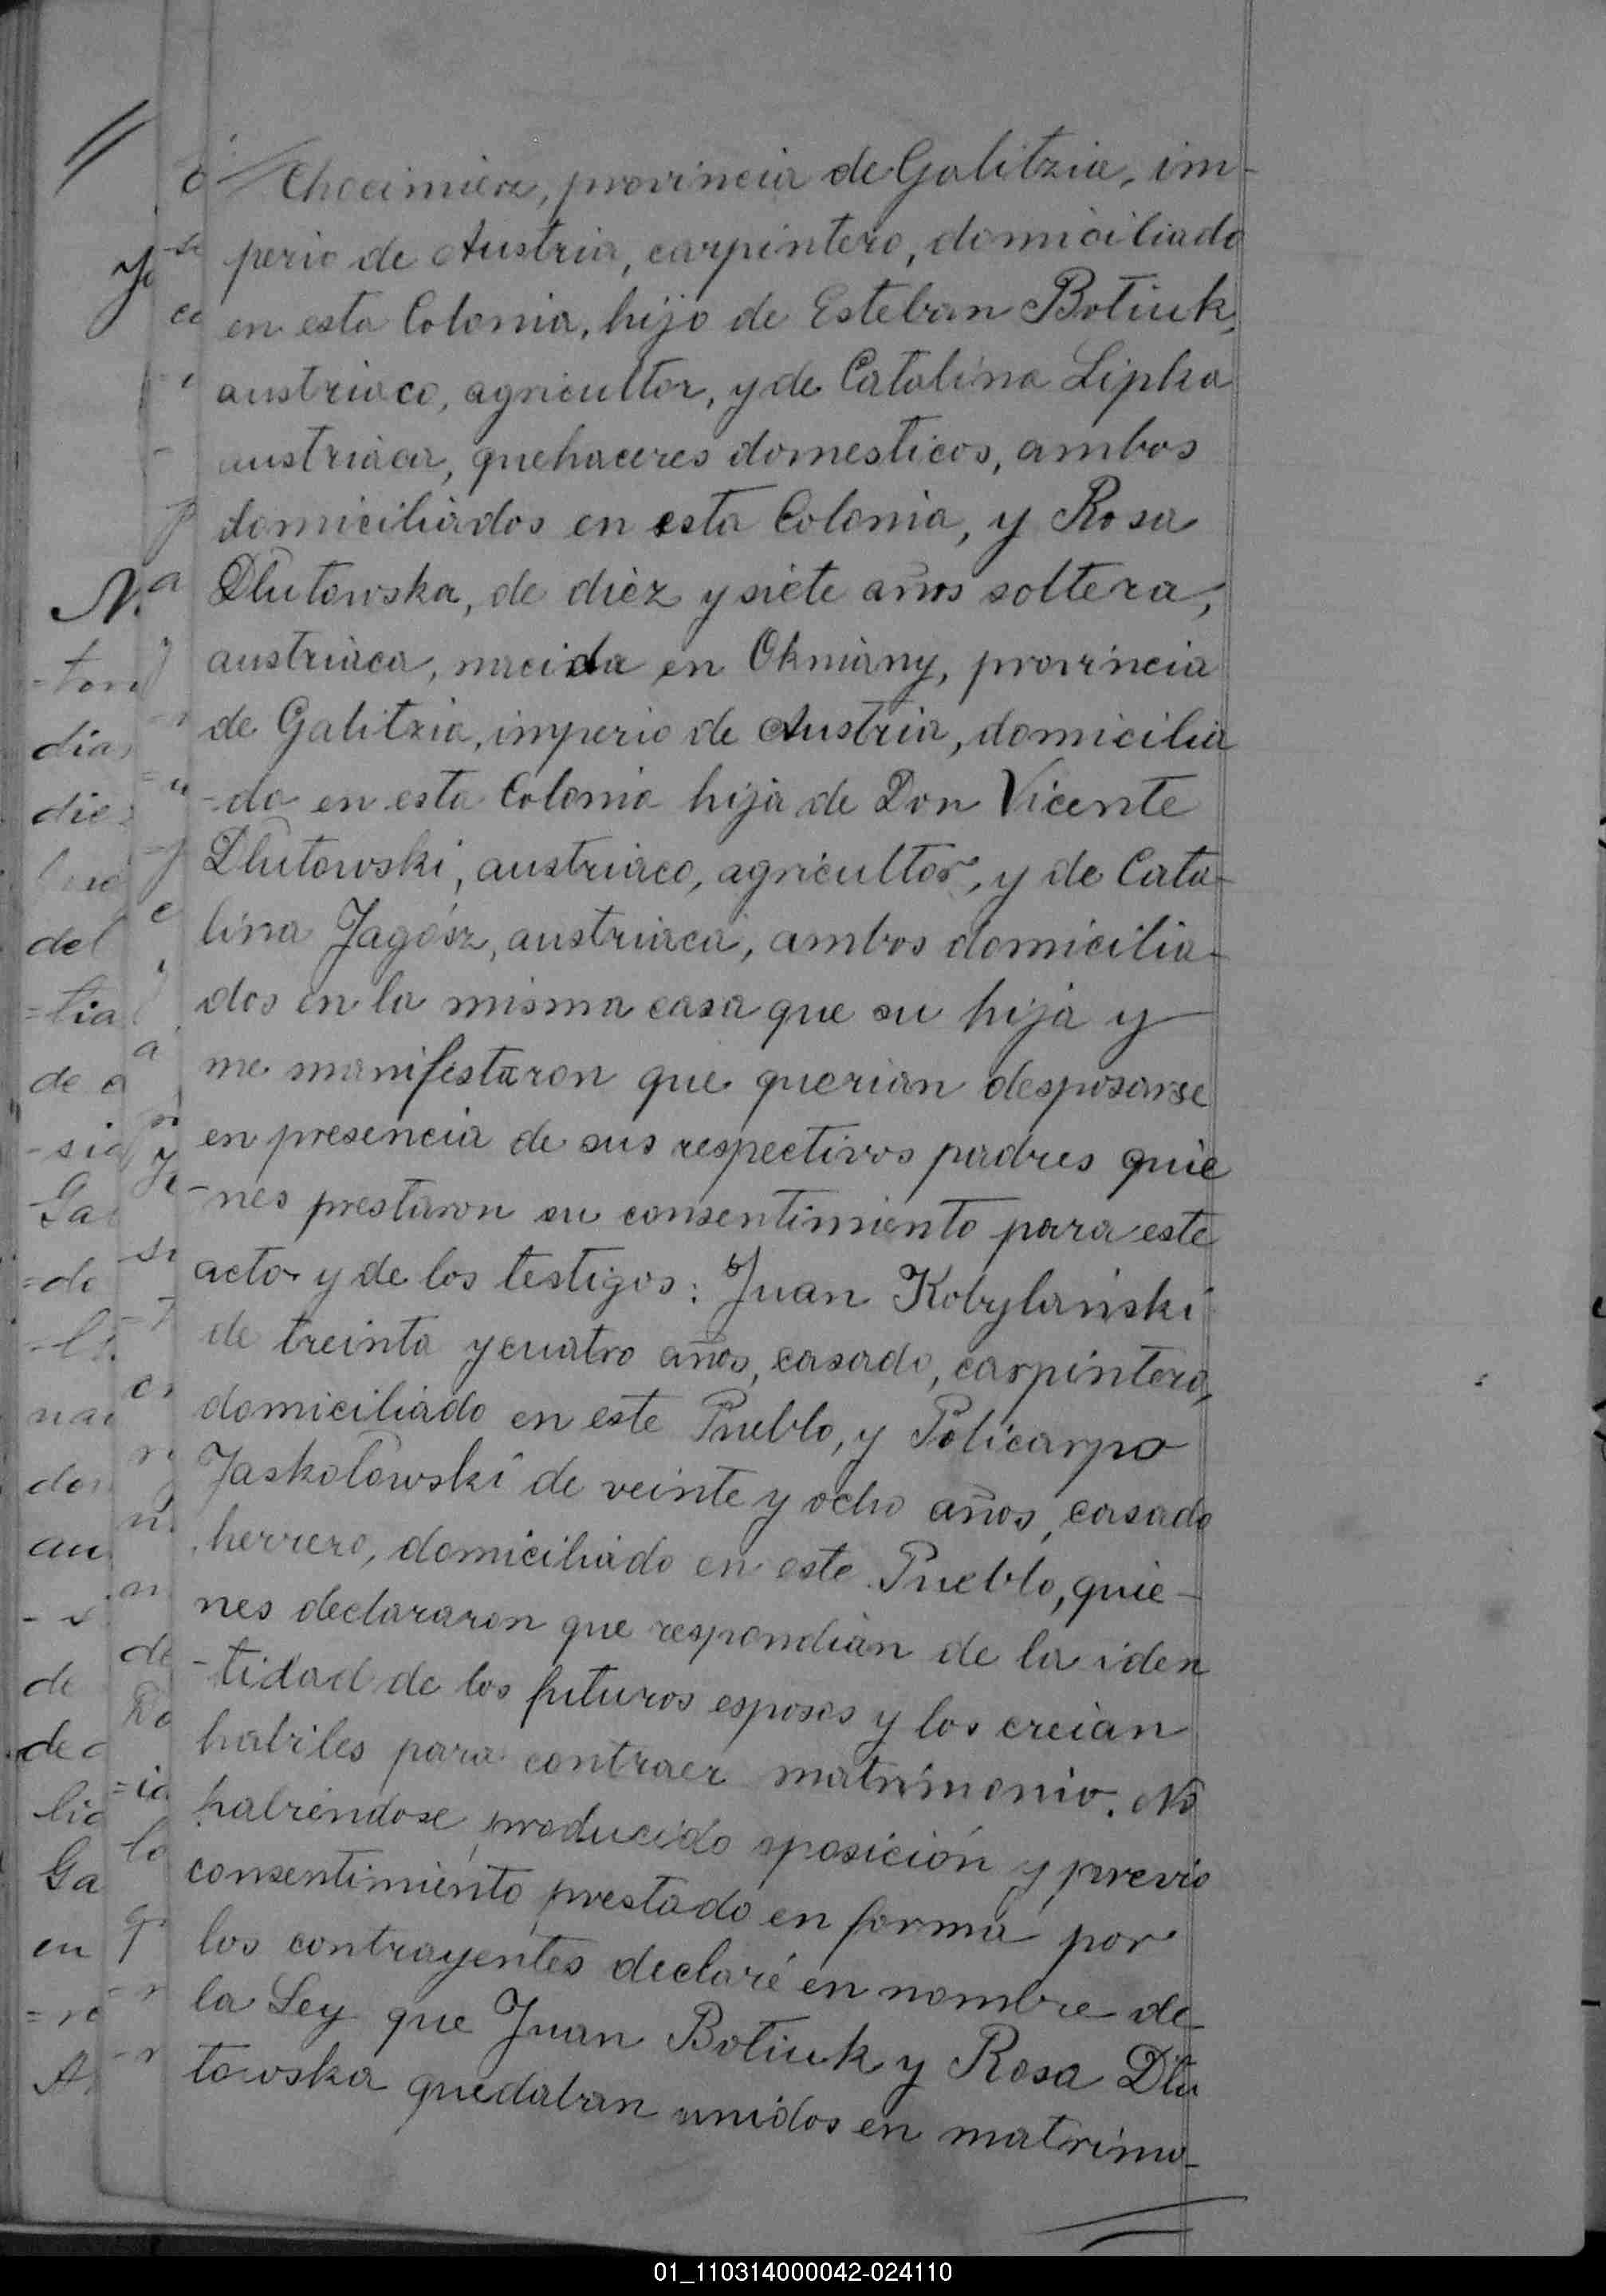 Chocimierz, provincia de Galitzia, im-
perio de Austria, carpintero, domiciliado
en esta Colonia, hijo de Esteban Botiuk,
austriaco, agricultor, y de Catalina Lipka
austriaca, quehaceres domesticos, ambos
domiciliados en esta Colonia, y Rosa
Dlutowska, de diez y siete años soltera,
austriaca, nacida en Okniany, provincia
de Galitzia, imperio de Austria, domicilia
-da en esta Colonia hija de Don Vicente
Dlutowski, austriaco, agricultor, y de Cata-
lina Jagósz, austriaca, ambos domicilia-
dos en la misma casa que su hija y
me manifestaron que querian desposarse
en presencia de sus respectivos padres quie
-nes prestaron su consentimiento para este
acto y de los testigos: Juan Kobylański
de treinta y cuatro años, casado, carpintero,
domiciliado en este Pueblo, y Policarpo
Jaskolowski de veinte y ocho años, casado
herrero, domiciliado en este Pueblo, quie-
nes declararon que respondian de la iden
-tidad de los futuros esposos y los creian
habiles para contraer matrimonio. No
habiéndose producido oposición y previo
consentimiento prestado en forma por
los contrayentes declaré en nombre de
la Ley que Juan Botiuk y Rosa Dlu
towska quedaban unidos en matrimo-
01_110314000042-024110